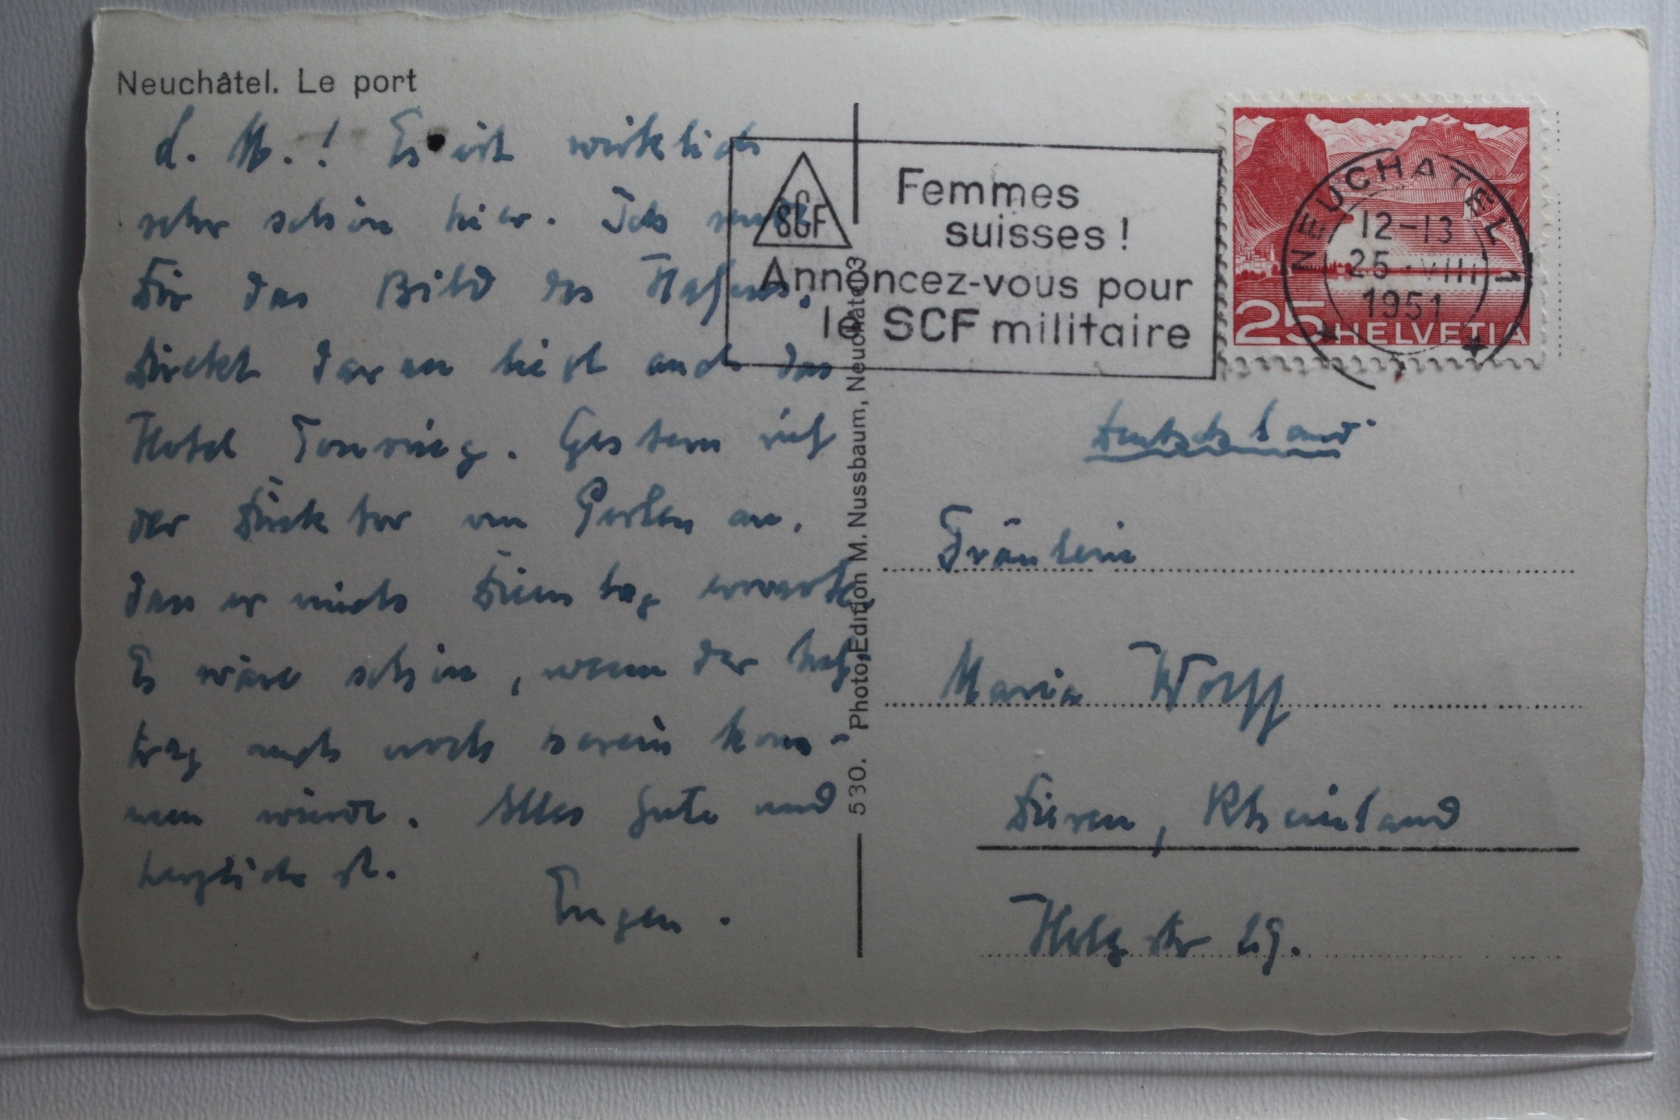 Neuchâtel. Le port
L. M.! Es ist wirklich
sehr schön hier. Ich sende
Dir das Bild des Hafens.
Direkt daran liegt auch das
Hotel Touring. Gestern rief
der Direktor von an,
dass er mich Dienstag erwarte.
Es wäre schön, wenn der
trag auch noch herein kom-
men würde. Alles Gute und
herzlichst.
Eugen.
530. Photo-Edition M. Nussbaum, Neuchâtel 3
SCF
Femmes
suisses!
Annoncez-vous pour
le SCF militaire
NEUCHATEL 1
12-13
25.VIII
1951
25 HELVETIA
Deutschland
Fräulein
Maria Wolff
Düren, Rheinland
Holzstr 29.